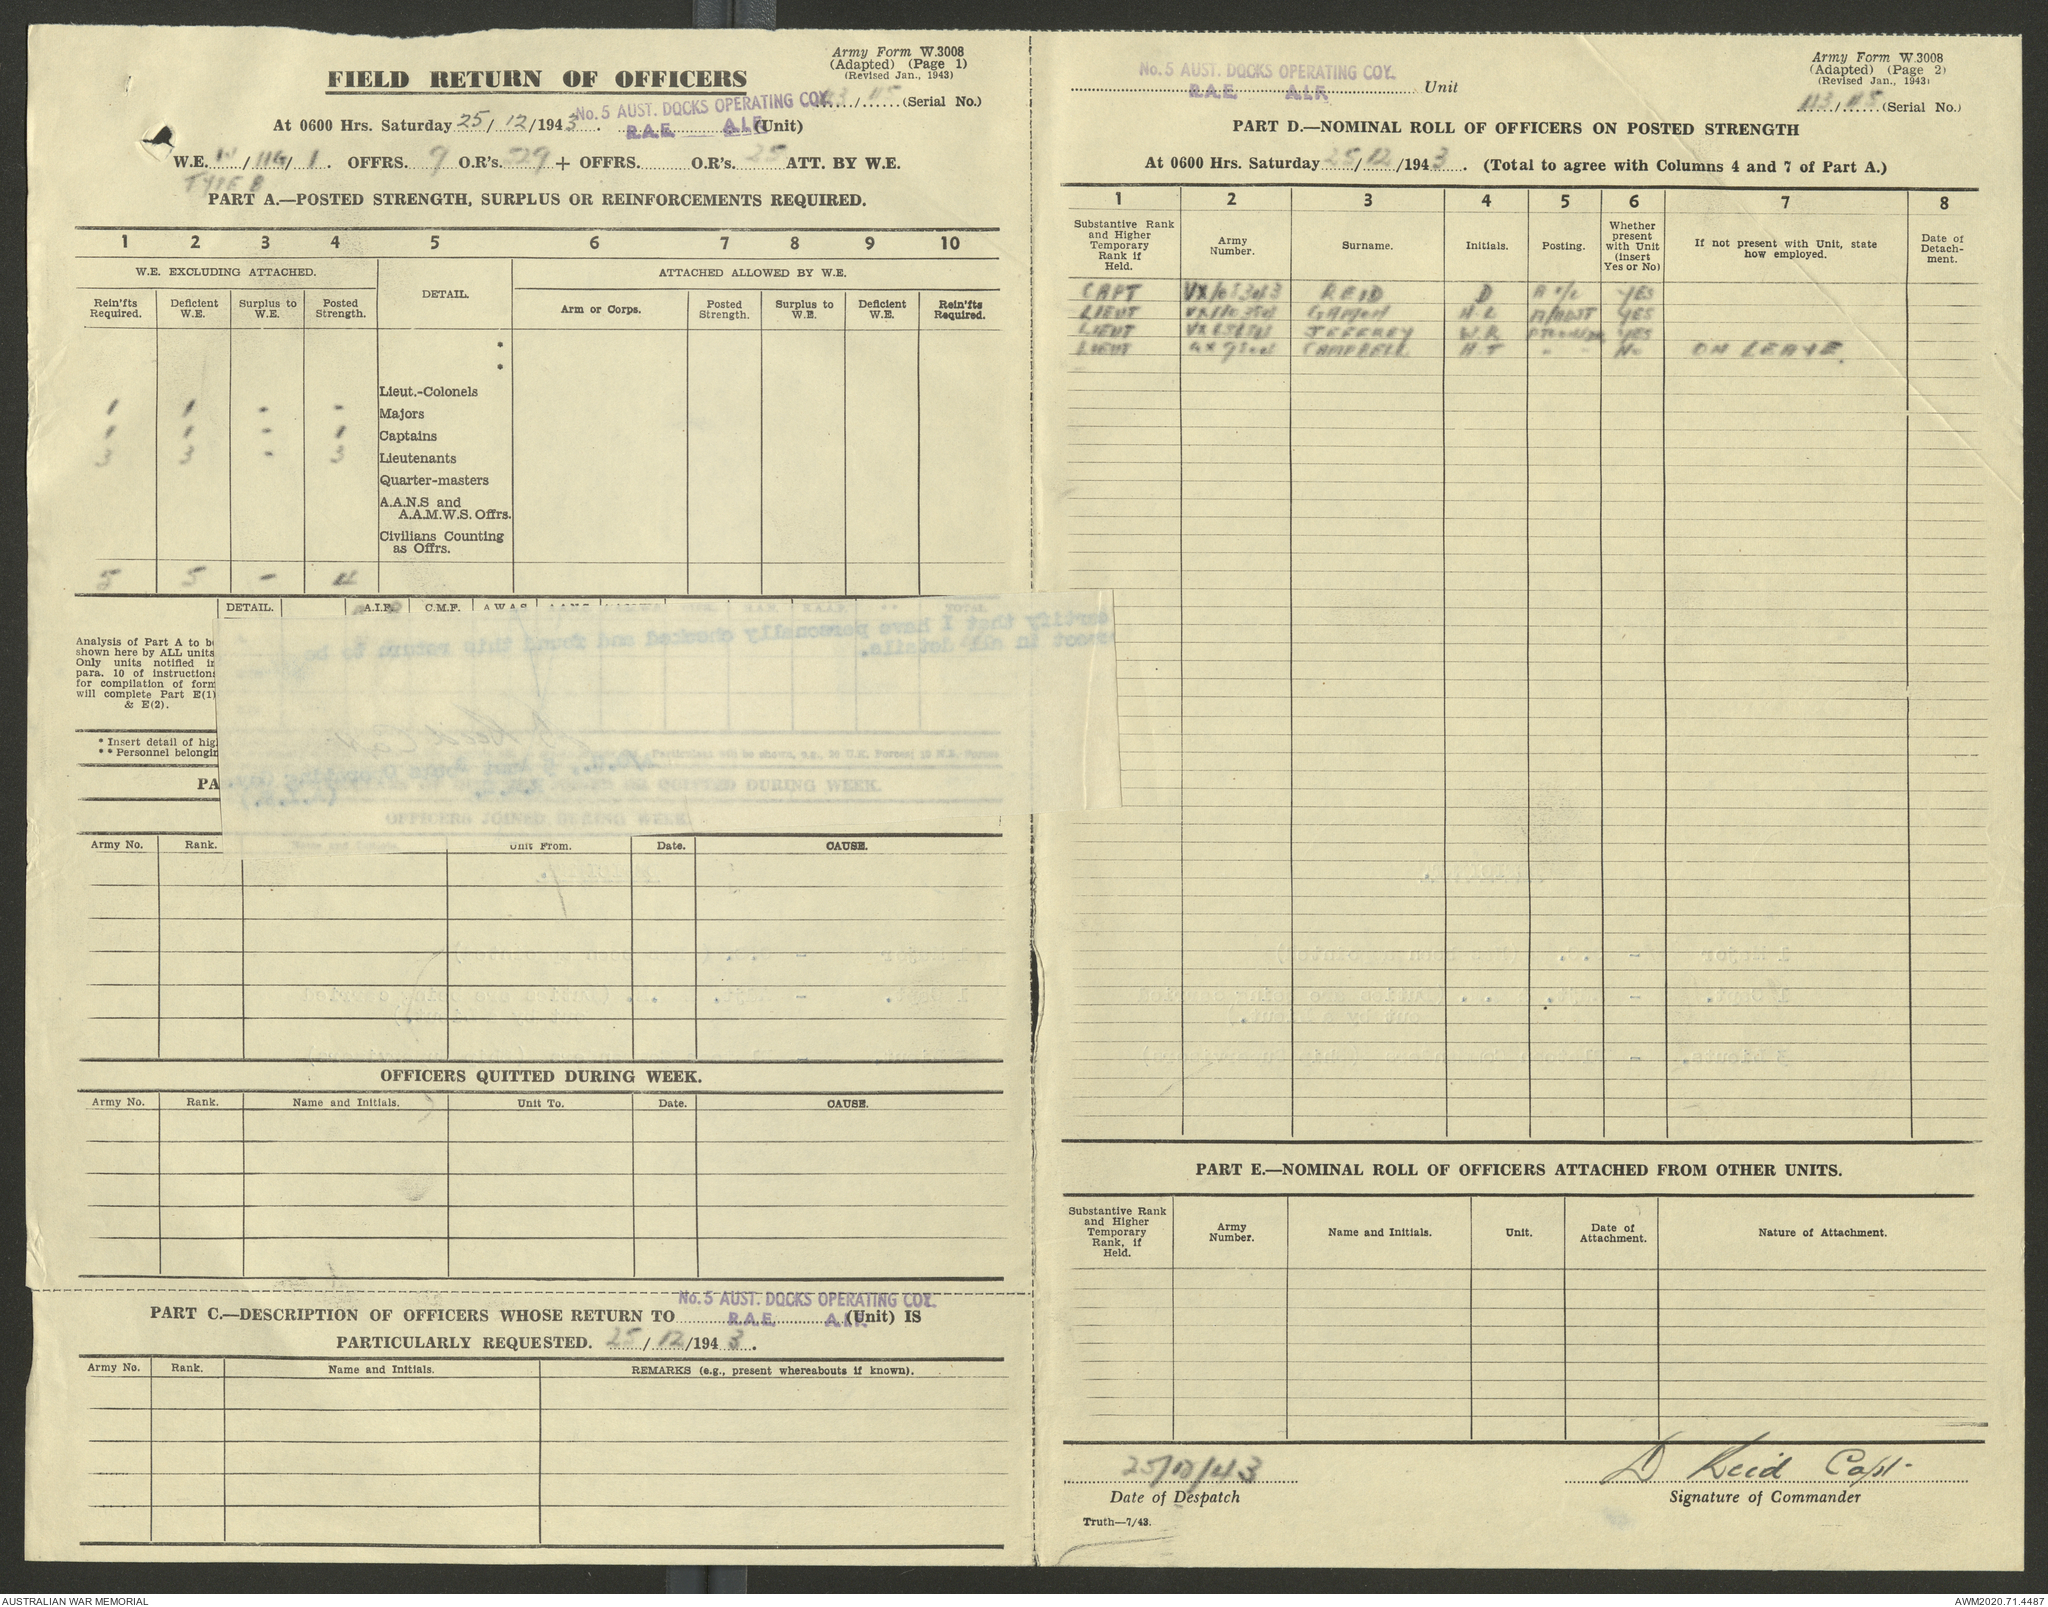 Army Form W.3008
(Adapted) (Page 1)
(Revised Jan., 1943)
FIELD RETURN OF OFFICERS
No. 5 AUST. DOCKS OPERATING COY.
R.A.E. A.I.F.
113/115 (Serial No.)
At 0600 Hrs. Saturday 25/12/1943. (Unit)
W.E. /116/1. OFFRS. 9 O.R's. 529 + OFFRS. O.R's. 25 ATT. BY W.E.
TYPE B
PART A.—POSTED STRENGTH, SURPLUS OR REINFORCEMENTS REQUIRED.
1 2 3 4 5 6 7 8 9 10
W.E. EXCLUDING ATTACHED. DETAIL. ATTACHED ALLOWED BY W.E.
Rein'fts Required. Deficient W.E. Surplus to W.E. Posted Strength. Arm or Corps. Posted Strength. Surplus to W.E. Deficient W.E. Rein'fts Required.
*
*
Lieut.-Colonels
1 1 - - Majors
1 1 - 1 Captains
3 3 - 3 Lieutenants
Quarter-masters
A.A.N.S and
A.A.M.W.S. Offrs.
Civilians Counting
as Offrs.
5 5 - 4
DETAIL. A.I.F. C.M.F. A.W.A.S.
Analysis of Part A to be
shown here by ALL units
Only units notified in
para. 10 of instructions
for compilation of form
will complete Part E(1)
& E(2).
* Insert detail of hig
* * Personnel belongin
PA
OFFICERS JOINED DURING WEEK.
Army No. Rank. Name and Initials. Unit From. Date. CAUSE.
OFFICERS QUITTED DURING WEEK.
Army No. Rank. Name and Initials. Unit To. Date. CAUSE.
No. 5 AUST. DOCKS OPERATING COY.
R.A.E. A.I.F.
PART C.—DESCRIPTION OF OFFICERS WHOSE RETURN TO (Unit) IS
PARTICULARLY REQUESTED. 25/12/1943.
Army No. Rank. Name and Initials. REMARKS (e.g., present whereabouts if known).
Army Form W.3008
(Adapted) (Page 2)
(Revised Jan., 1943)
No. 5 AUST. DOCKS OPERATING COY.
R.A.E. A.I.F.
Unit
113/115 (Serial No.)
PART D.—NOMINAL ROLL OF OFFICERS ON POSTED STRENGTH
At 0600 Hrs. Saturday 25/12/1943. (Total to agree with Columns 4 and 7 of Part A.)
1 2 3 4 5 6 7 8
Substantive Rank and Higher Temporary Rank if Held. Army Number. Surname. Initials. Posting. Whether present with Unit (insert Yes or No) If not present with Unit, state how employed. Date of Detachment.
CAPT REID D YES
LIEUT GAMON H.L A/ADJT YES
LIEUT JEFFREY W.R YES
LIEUT CAMPBELL H.T - - No ON LEAVE.
PART E.—NOMINAL ROLL OF OFFICERS ATTACHED FROM OTHER UNITS.
Substantive Rank and Higher Temporary Rank, if Held. Army Number. Name and Initials. Unit. Date of Attachment. Nature of Attachment.
25/12/43
D Reid Capt.
Date of Despatch
Signature of Commander
Truth—7/43.
AUSTRALIAN WAR MEMORIAL
AWM2020.71.4487